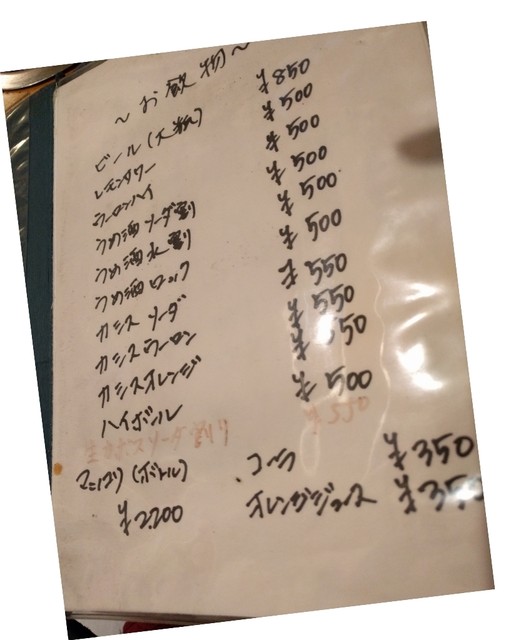 ～お飲物～
ビール(大瓶) ¥850
レモンサワー ¥500
ウーロンハイ ¥500
うめ酒ソーダ割 ¥500
うめ酒水割 ¥500
うめ酒ロック ¥500
カシスソーダ ¥550
カシスウーロン ¥550
カシスオレンジ ¥550
ハイボール ¥500
ソーダ割り ¥550
マッコリ(ボトル) ¥2,200
コーラ ¥350
オレンジジュース ¥350